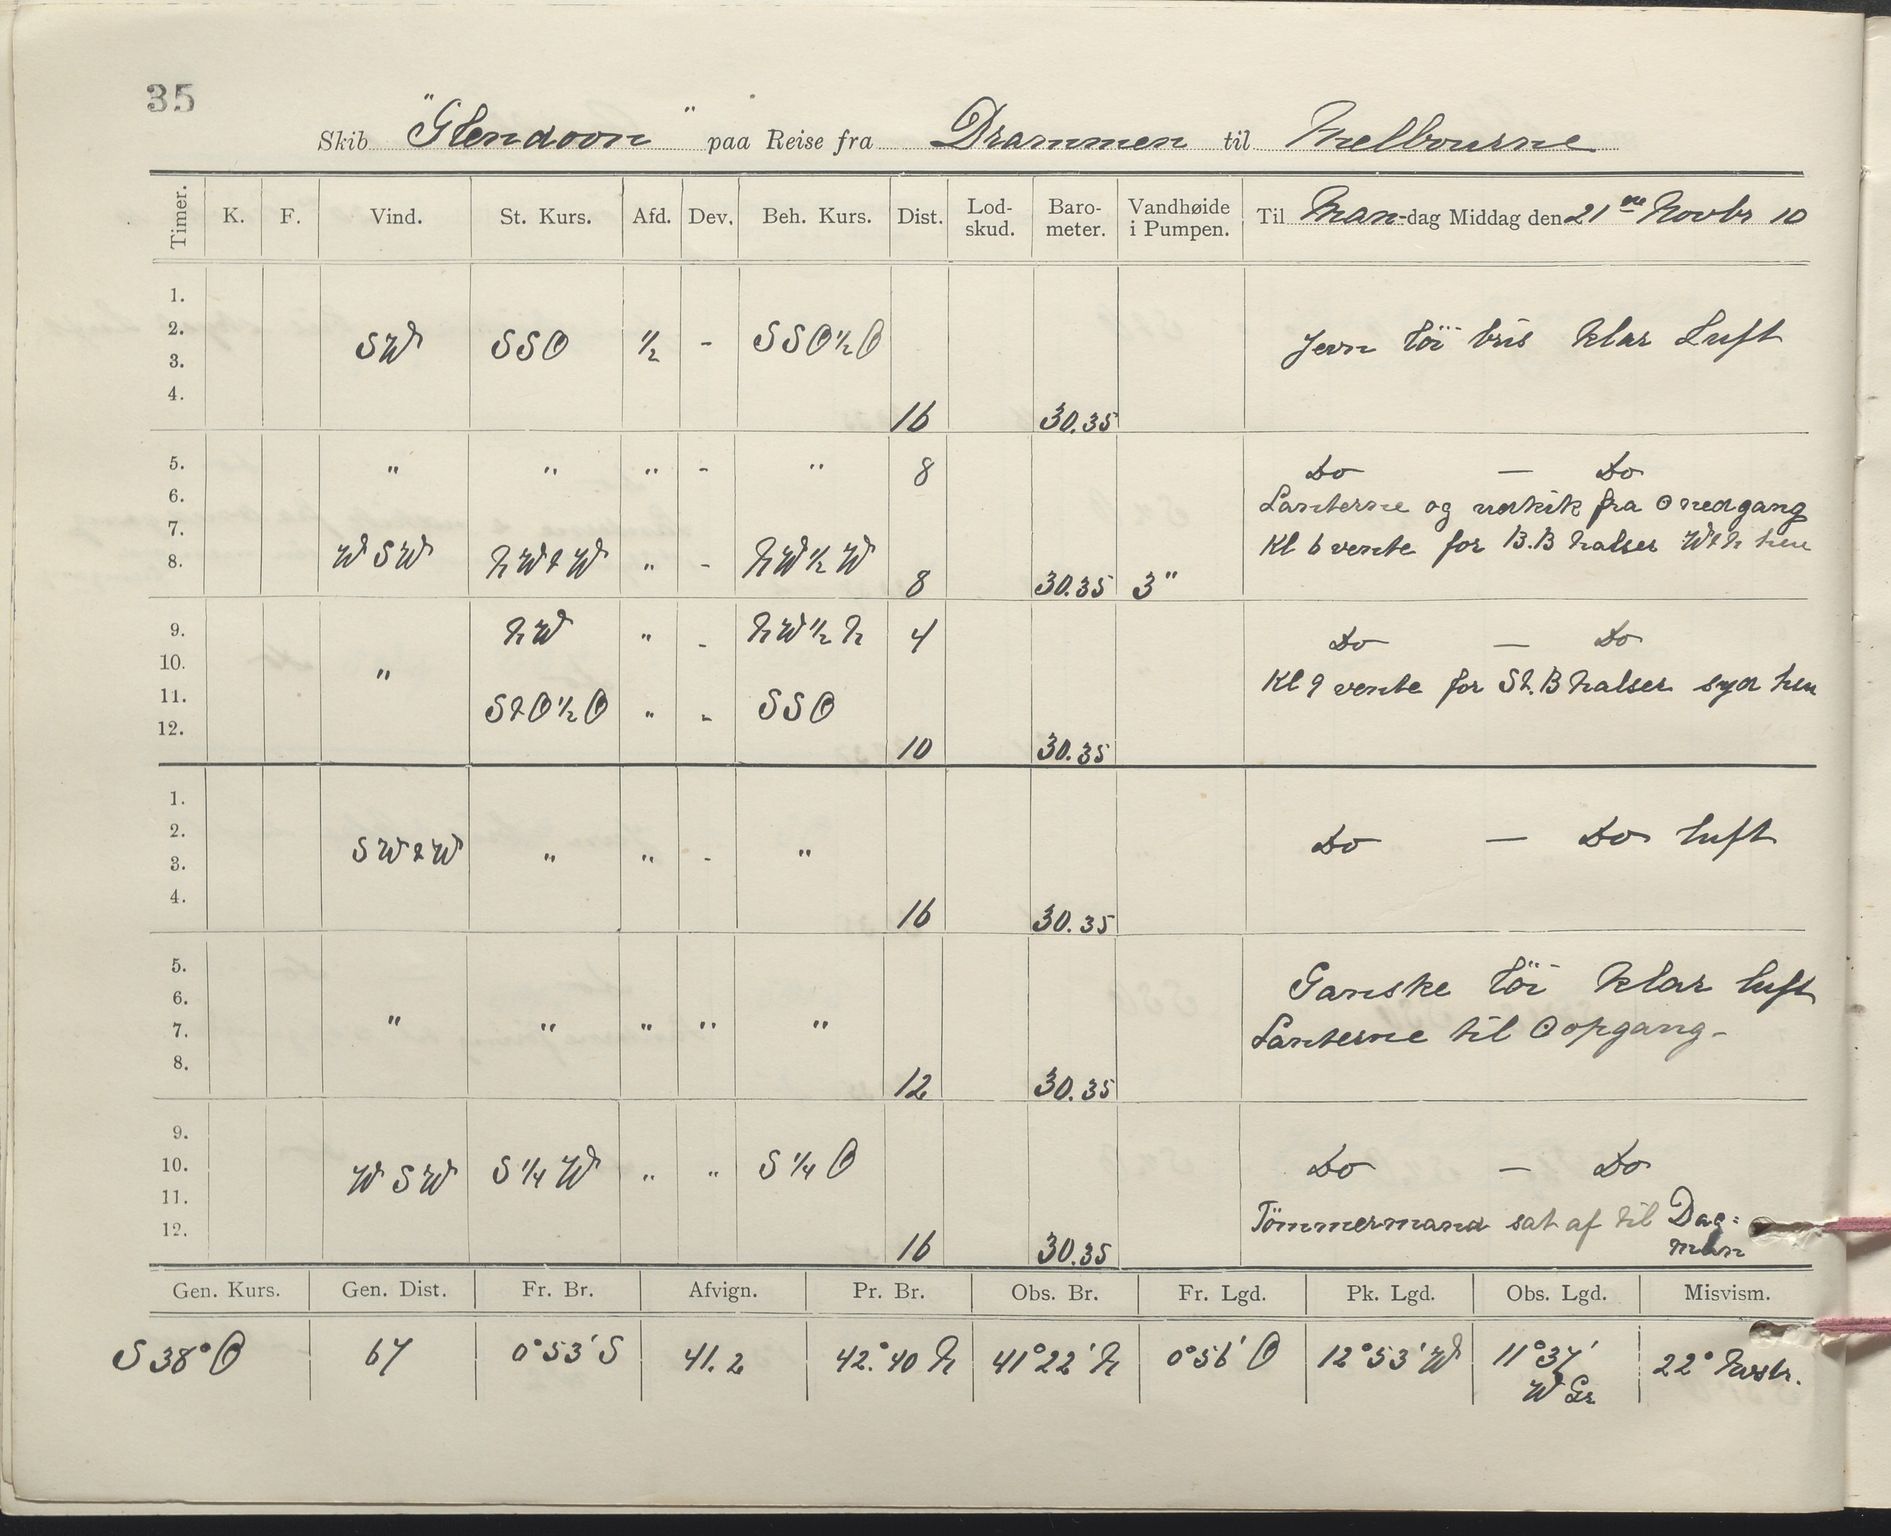 35
Skib "Glendoon" paa Reise fra Drammen til Melbourne
Timer. K. F. Vind. St. Kurs. Afd. Dev. Beh. Kurs. Dist. Lod-skud. Baro-meter. Vandhøide i Pumpen. Til Man-dag Middag den 21ne Novbr 10
1.
2.
SW SSO 1/2 - SSO1/2O Jevn löi bris klar Luft
3.
4.
16 30.35
5. " " " - " 8 Do — Do
6. Lanterne og udkik fra O nedgang
7. Kl 6 vente for B.B halser W & N hen
8. WSW NW & W " - NW1/2W 8 30.35 3"
9. NW " - NW1/2N 4 Do — Do
10. "
11. Kl 9 vente for St.B halser syd hen
S&O1/2O " - SSO
12. 10 30.35
1.
2.
SW&W " " - " Do — Do luft
3.
4. 16 30.35
5.
6. Ganske löi klar luft
7. " " " " " Lanterne til O opgang-
8. 12 30.35
9.
10. WSW S1/4W " " S1/4O Do — Do
11.
12. Tömmermand sat af til Dag=
man
16 30.35
Gen. Kurs. Gen. Dist. Fr. Br. Afvign. Pr. Br. Obs. Br. Fr. Lgd. Pk. Lgd. Obs. Lgd. Misvism.
S38°O 67 0°53'S 41.2 42.°40 N 41°22'N 0°56'O 12°53'W 11°37' 22° Nvstr.
W Gr